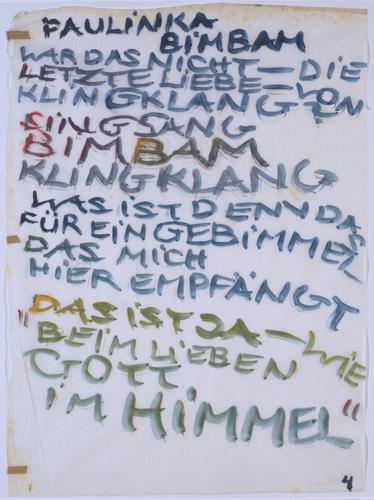 PAULINKA
BIMBAM
WAR DAS NICHT — DIE
LETZTE LIEBE —
KLINGKLANG
SINGSANG
BIMBAM
KLINGKLANG
WAS IST DENN DAS
FÜR EIN GEBIMMEL
DAS MICH
HIER EMPFÄNGT
"DAS IST JA — WIE
BEIM LIEBEN
GOTT
IM HIMMEL"
4